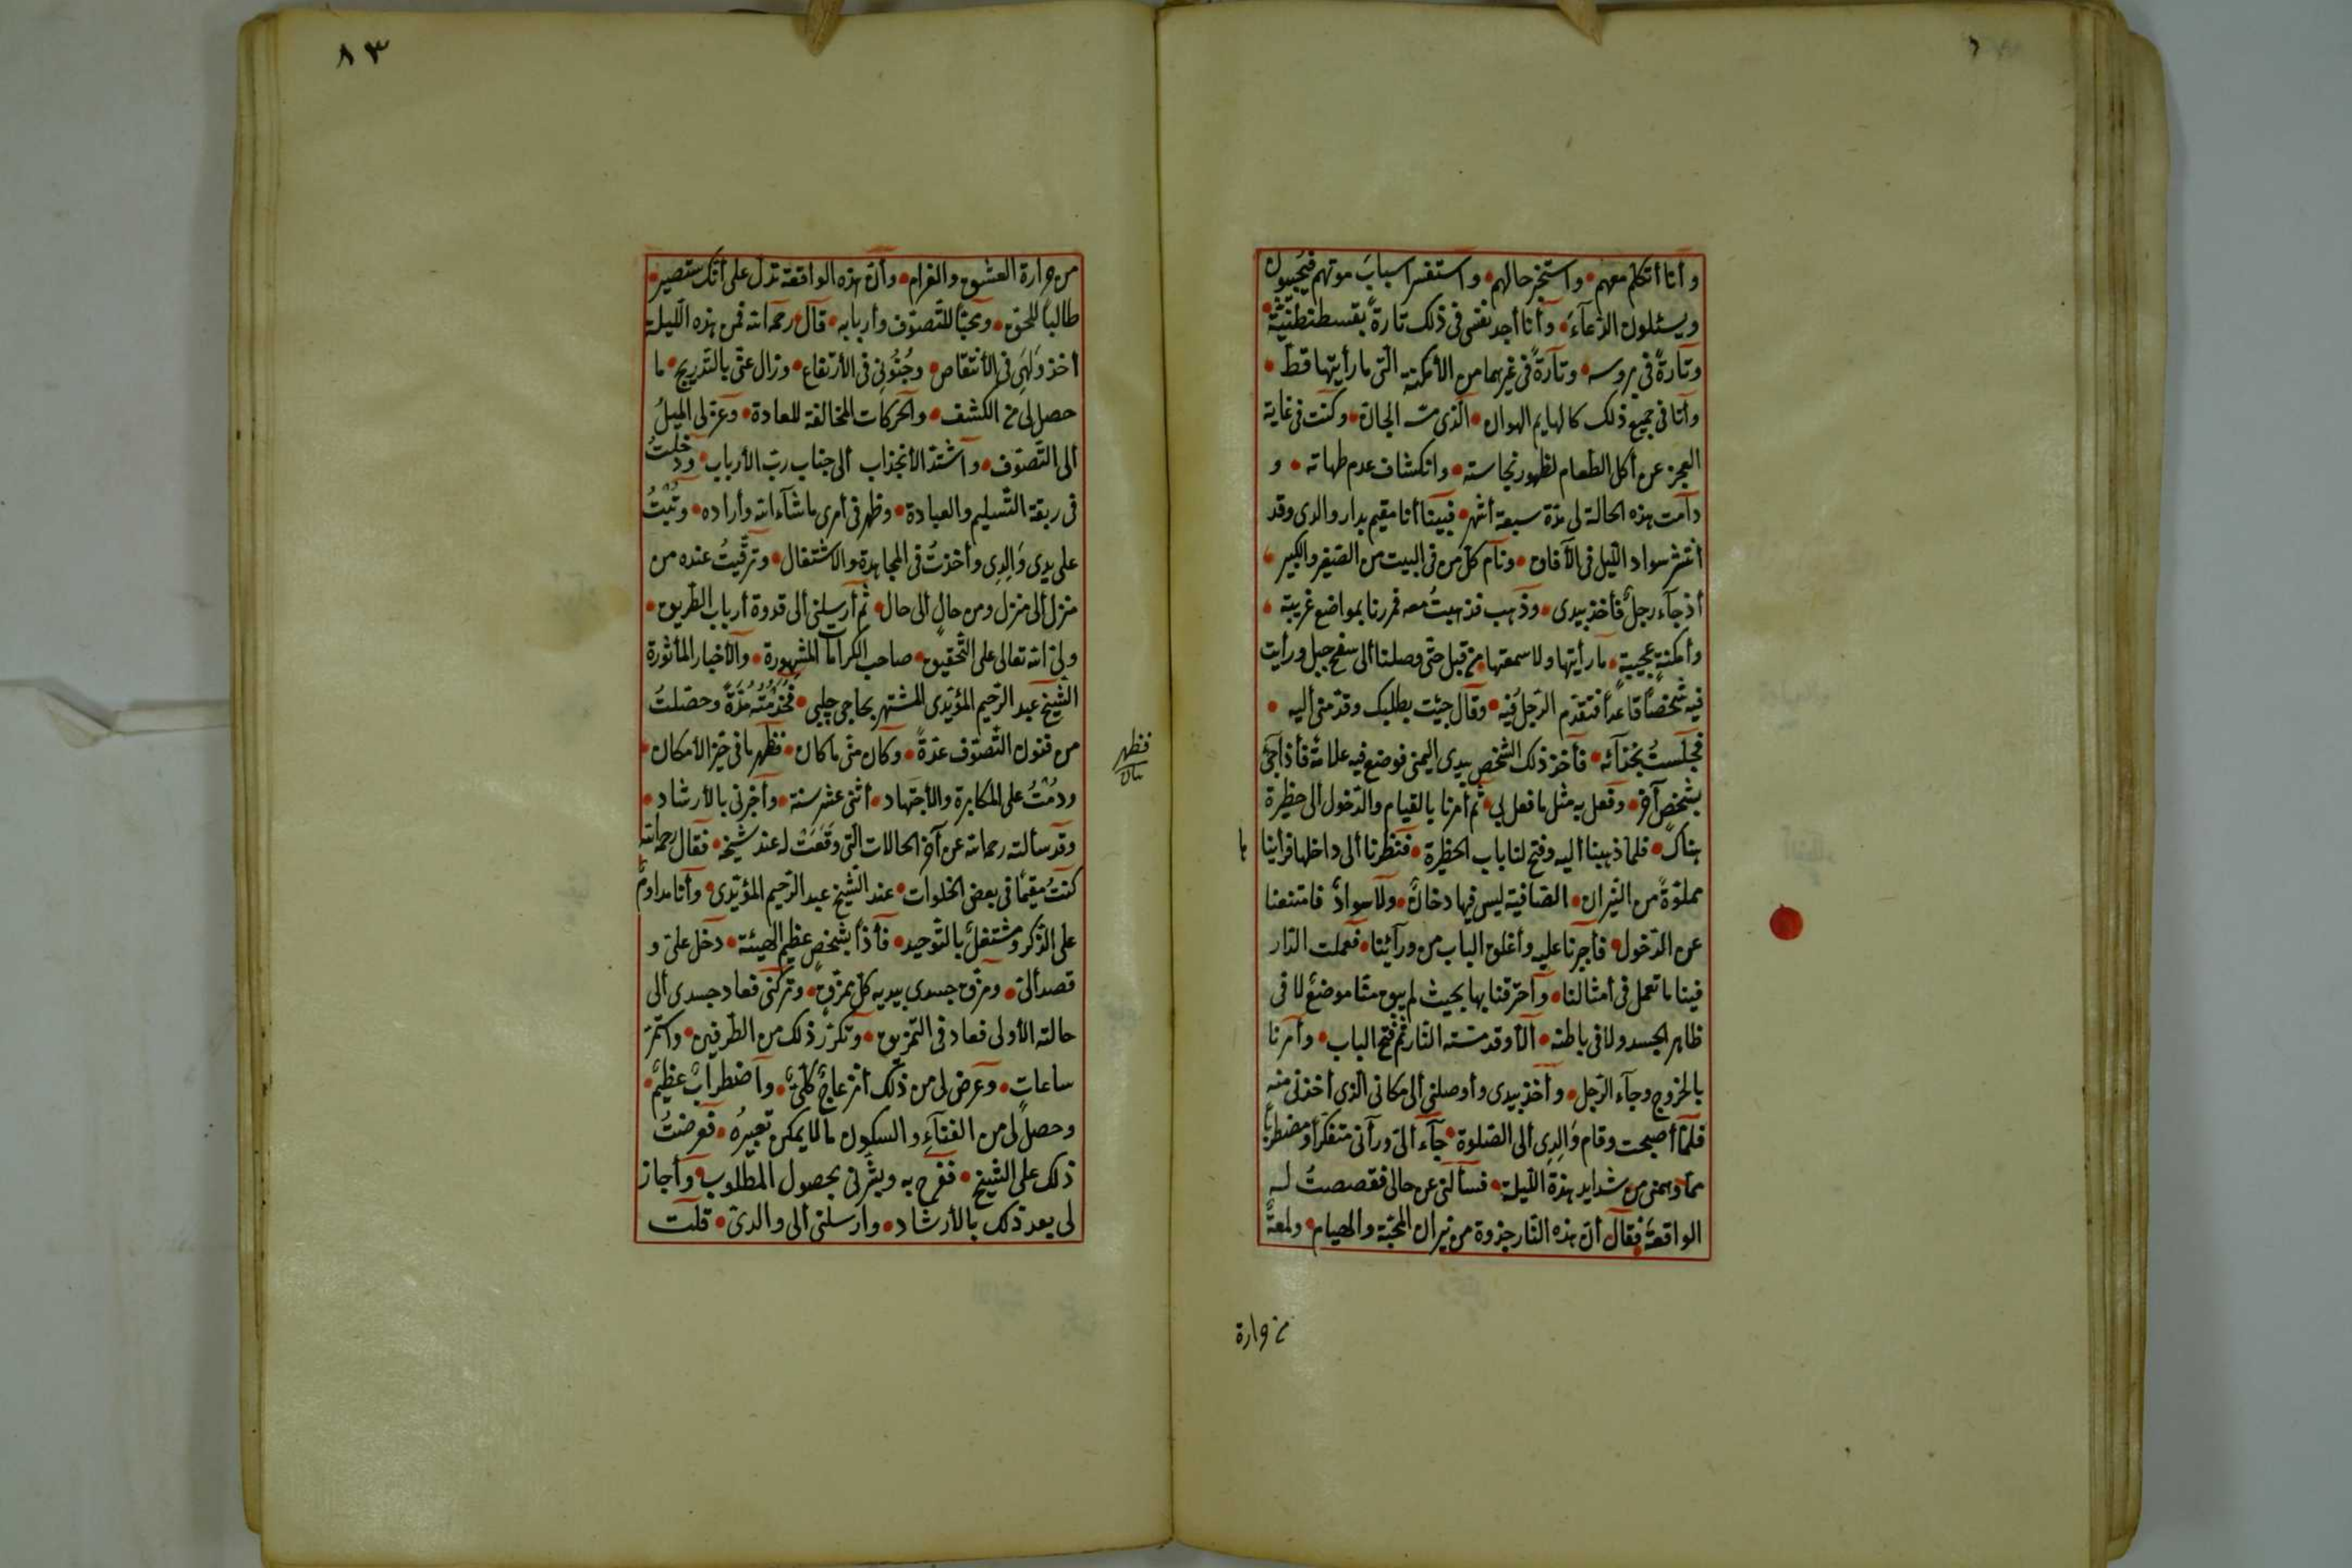 وأنا أتكلم معهم • واستخبر حالهم • واستفسر أسباب موتهم فيجيبون
ويسئلون الدعآء • وأنا أجد نفسى فى ذلك تارةً بقسطنطنيّة •
وتارةً فى بروسه • وتارةً فى غيرهما من الأمكنة الّتى ما رأيتها قط •
وأنا فى جميع ذلك كالهايم الهوان • الّذى مسّه الجان • وكنت فى غاية
العجز عن أكل الطعام لظهور نجاسته • وانكشاف عدم طهاته • و
دآمت هذه الحالة لى مدّة سبعة أشهر • فبينا أنا مقيم بدار والدى وقد
أنتشر سواد اللّيل فى الآفاق • ونام كل من فى البيت من الصّغير والكبير •
أذ جآء رجلٌ فأخذ بيدى • وذهب فذهبتُ معه فمررنا بمواضع غريبة •
وأمكنةٍ عجيبةٍ • ما رأيتها ولا سمعتها من قبل حتّى وصلنا ألى سفح جبل ورأيت
فيه شخصًا قاعدًا فتقدّم الرّجل فيه • وقال جئت بطلبك وقدّمنى أليه •
فجلستُ بحذآئه • فأخذ ذلك الشخص بيدى اليمنى فوضع فيه علامةً فأذا جئ
بشخص آخر • وفعل به مثل ما فعل بى • ثم أمرنا بالقيام والدّخول ألى حظيرة
هناك • فلمّا ذهبنا أليه وفتح لنا باب الحظيرة • فنظرنا ألى داخلها فرأينا
مملوّةً من النّيران • الصّافية ليس فيها دخانٌ • ولا سوادٌ فامتنعنا
عن الدّخول • فأجبرنا عليه وأغلق الباب من ورآئنا • فعملت النّار
فينا ما تعمل فى أمثالنا • وأحرقنا بها بحيث لم يبق منّا موضعٌ لا فى
ظاهر الجسد ولا فى باطنه • ألّا وقد مسّته النّار ثم فتح الباب • وأمرنا
بالخروج وجآء الرّجل • وأخذ بيدى وأوصلنى ألى مكانى الّذى أخذنى منه
فلمّا أصبحت وقام والدى ألى الصّلوة • جآء ألىّ ورآنى متفكّرًا ومضطربًا
ممّا دهمنى من شدايد هذه اللّيلة • فسألنى عن حالى فقصصتُ له
الواقعة فقال أنّ هذه النّار جذوة من نيران المحبّة والهيام • ولمعةً
من حرارة
٨٣
من حرارة العشق والغرام • وأنّ هذه الواقعة تدلّ على أنّك ستصير •
طالبًا للحقّ • ومحبًّا للتّصوّف وأربابه • قال رحمه الله فمن هذه اللّيلة
أخذ ولهى فى الأنتقاص • وجنونى فى الأرتفاع • وزال عنّى بالتّدريج • ما
حصل لى من الكشف • والحركات المخالفة للعادة • وعرة لى الميلُ
ألى التّصوّف • واشتدّ الأنجذاب ألى جناب ربّ الأرباب • ودخلتُ
فى ربقة التّسليم والعبادة • وظهر فى أمرى ما شآء الله وأراده • وتبتُ
على يدى والدى وأخذتُ فى المجاهدة والاشتغال • وترقّيتُ عنده من
منزل ألى منزل ومن حال ألى حال • ثم أرسلنى ألى قدوة أرباب الطّريق •
ولىّ الله تعالى على التّحقيق • صاحب الكرامات المشهورة • والأخبار المأثورة
الشّيخ عبد الرّحيم المؤيّدى المشتهر بحاجى چلبى • فخدمته مدّةً وحصّلتُ
من فنون التّصوّف عدّةً • وكان منّى ما كان • فظهر ما فى حيّز الأمكان •
فظهر
بيان
ودمتُ على المكابرة والأجتهاد • أثنى عشر سنة • وأخبرنى بالأرشاد •
وقد سألته رحمه الله عن آخر الحالات الّتى وقعت له عند شيخه • فقال رحمه الله
كنتُ مقيمًا فى بعض الخلوات • عند الشّيخ عبد الرّحيم المؤيّدى • وأنا مداومٌ
على الذّكر ومشتغلٌ بالتّوحيد • فأذا بشخص عظيم الهيئة • دخل علىّ و
قصد ألىّ • ومزّق جسدى بيديه كلّ ممزّق • وتركنى فعاد جسدى ألى
حالته الأولى فعاد فى التمزيق • وتكرّر ذلك من الطّرفين • واستمرّ
ساعات • وعرض لى من ذلك أنزعاجٌ كلّىٌّ • واضطرابٌ عظيمٌ •
وحصل لى من الفنآء والسكون ما لا يمكن تعبيرُه • فعرضتُ
ذلك على الشّيخ • ففرح به وبشّرنى بحصول المطلوب • وأجاز
لى بعد ذلك بالأرشاد • وأرسلنى ألى والدىّ • قلت